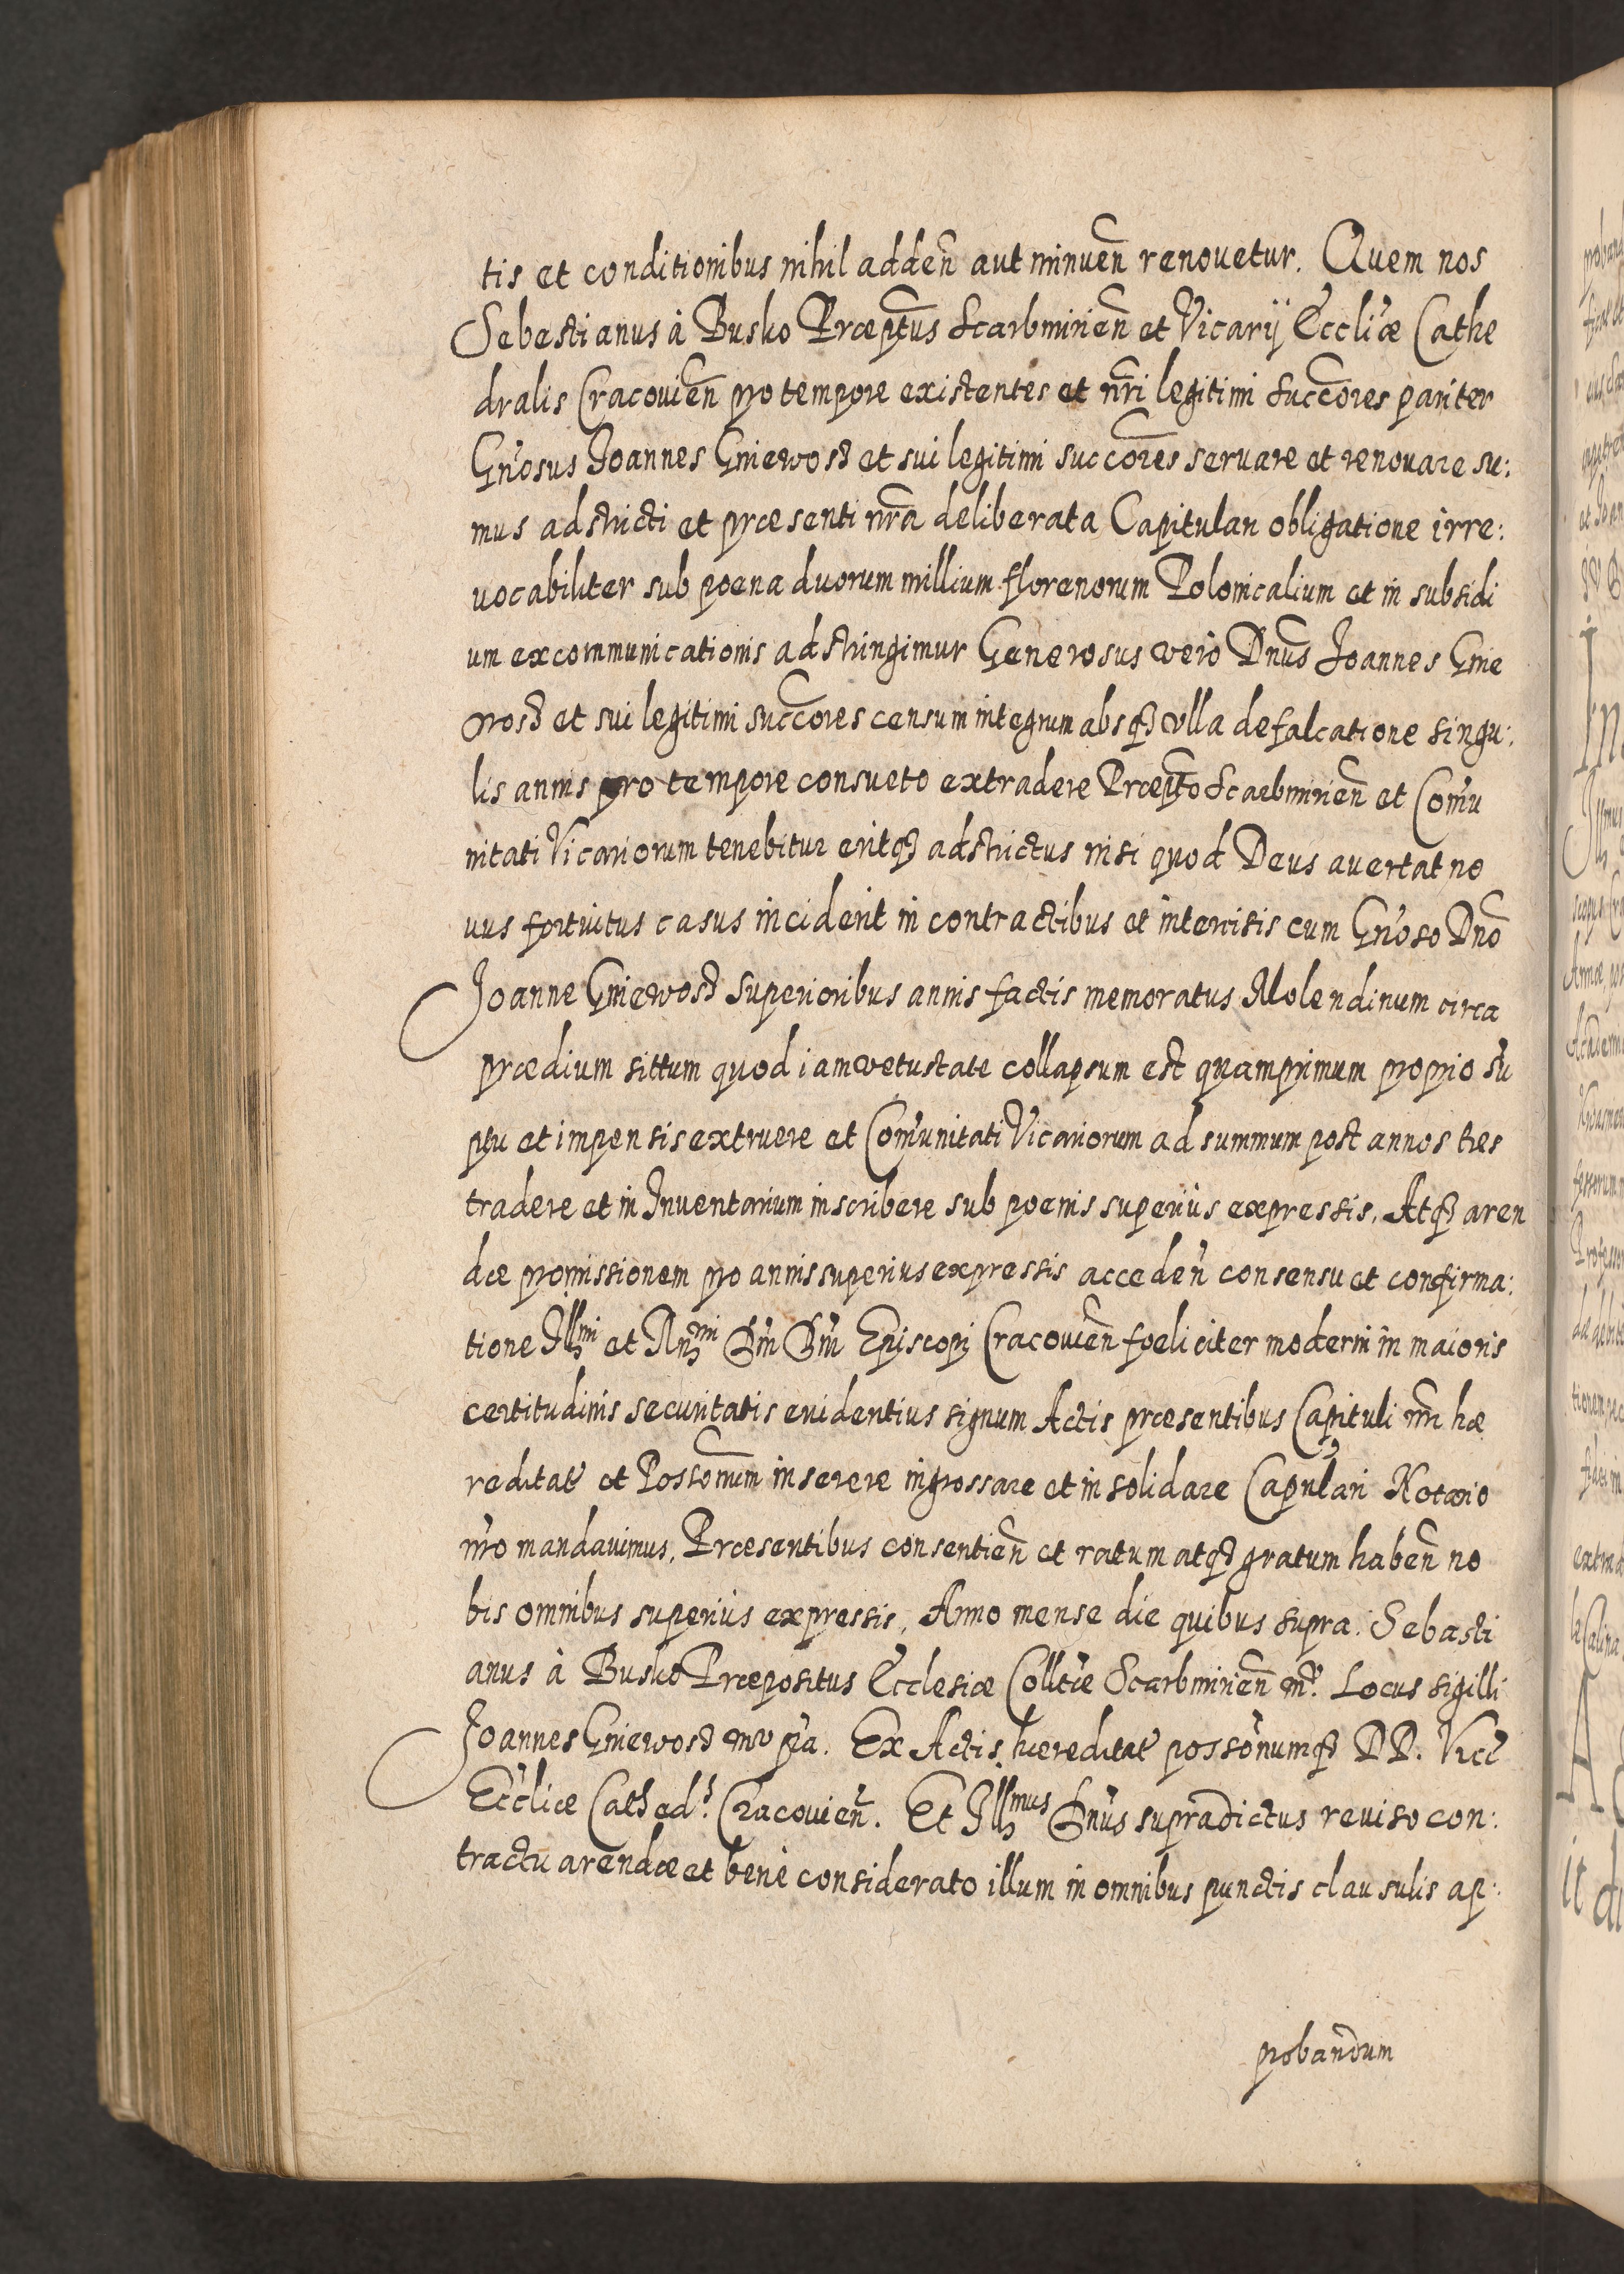 tis et conditionibus nihil adden̄ aut minuen̄ renovetur. Quem nos
Sebastianus à Busko Præpt̄us Scarbmirien̄ et Vicarij Eccliæ Cathe
dralis Cracovien̄ pro tempore existentes et nr̄i legitimi succ̄ores pariter
Gn̄osus Joannes Gniewosz et sui legitimi succ̄ores servare et renouare su:
mus adstricti et præsenti nr̄a deliberata Capitulari obligatione irre:
uocabiliter sub poena duorum millium florenorum Polonicalium et in subsidi
um excommunicationis adstringimur Generosus vero Dnu̅s Joannes Gnie
wosz et sui legitimi succ̄ores censum integrum absq3 vlla defalcatione singu:
lis annis pro tempore consueto extradere Præpt̄o Scarbmirien̄ et Com̄u
nitati Vicariorum tenebitur eritq3 adstrictus nisi quod Deus avertat no
uus fortuitus casus inciderit in contractibus et intercisis cum Gn̄oso Dn̄o
Joanne Gniewosz superioribus annis factis memoratus Molendinum circa
prædium sittum quod iam vetustate collapsum est quamprimum proprio su̅
ptu et impensis extruere et Com̄unitati Vicariorum ad summum post annos tres
tradere et in Inventarium inscribere sub poenis superius expressis. Atq3 aren
dæ promissionem pro annis superius expressis acceden̄ consensu et confirma:
tione Illmi et Rn̄mi Dn̄i Dn̄i Episcopi Cracovien̄ foeliciter moderni in maioris
certitudinis securitatis evidentius signum Actis præsentibus Capituli nr̄i hæ
reditat̄ et Posson̄um inserere ingrossare et insolidare Capnlari Notario
nr̄o mandavimus. Præsentibus consentien̄ et ratum atq3 gratum haben̄ no
bis omnibus superius expressis. Anno mense die quibus supra. Sebasti
anus à Busko Præpositus Ecclesiæ Colltæ Scarbmirien̄ mp. Locus sigilli
Joannes Gniewosz mp. Ex Actis hæreditat̄ posson̄umq3 DD. Vicc̄
Ecc̄liæ Cathed. Cracovien̄. Et Illmus Dn̄us supradictus reviso con:
tractu arendæ et benè considerato illum in omnibus punctis clausulis ap:
probandum